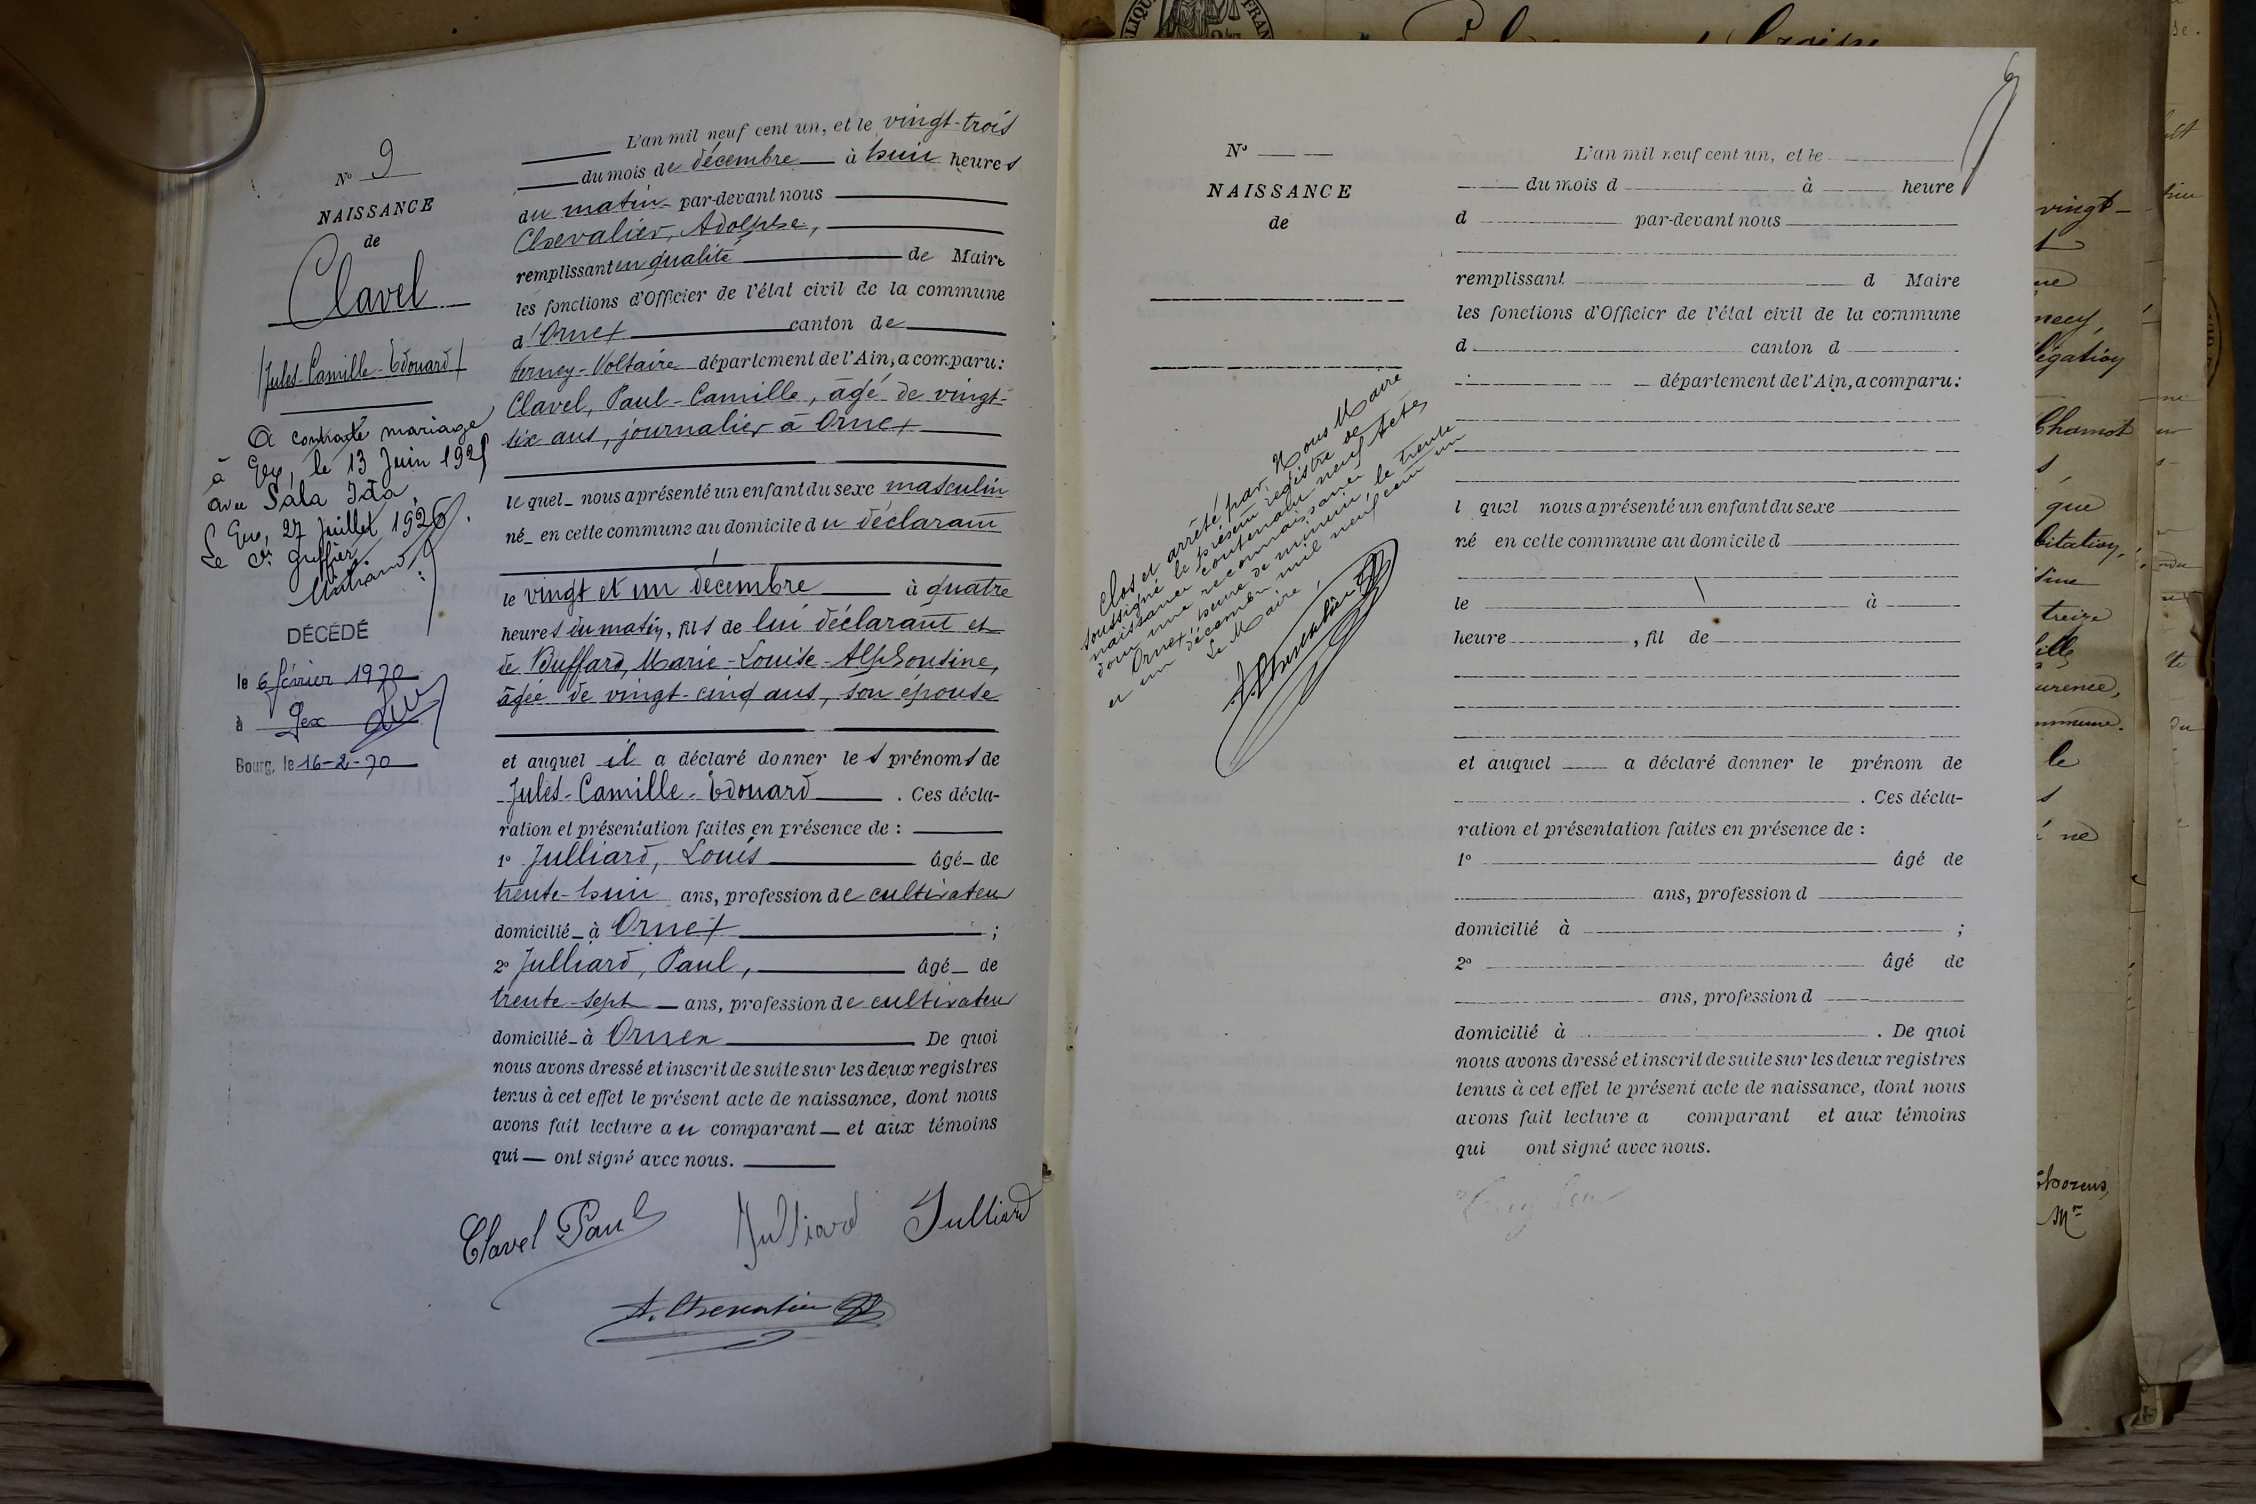 N° 9
NAISSANCE
de
Clavel
Jules-Camille-Edouard
A contracté mariage
à Gex, le 13 Juin 192
avec Sala Ida
Gex, 27 Juillet 1926.
Le Cis Greffier
DÉCÉDÉ
le 6 février 1970
à Gex
Bourg, le 16-2-70
L'an mil neuf cent un, et le vingt-trois
du mois de décembre à huit heures
du matin par-devant nous
Chevalier, Adolphe,
remplissant en qualité de Maire
les fonctions d'Officier de l'état civil de la commune
d'Ornex canton de
Ferney-Voltaire département de l'Ain, a comparu:
Clavel, Paul-Camille, âgé de vingt-
six ans, journalier à Ornex
le quel nous a présenté un enfant du sexe masculin
né en cette commune au domicile du déclarant
le vingt et un décembre à quatre
heures du matin, fils de lui déclarant et
de Buffard, Marie-Louise-Alphonsine,
âgée de vingt-cinq ans, son épouse
et auquel il a déclaré donner les prénoms de
Jules-Camille-Edouard. Ces décla-
ration et présentation faites en présence de :
1° Julliard, Louis âgé de
trente-huit ans, profession de cultivateur
domicilié à Ornex ;
2° Julliard, Paul, âgé de
trente-sept ans, profession de cultivateur
domicilié à Ornex De quoi
nous avons dressé et inscrit de suite sur les deux registres
tenus à cet effet le présent acte de naissance, dont nous
avons fait lecture au comparant et aux témoins
qui ont signé avec nous.
Clavel Paul Julliard Julliard
A. Chevalier
6
N°
NAISSANCE
de
Clos et arrêté par Nous Maire
soussigné le présent registre de
naissance contenant neuf actes
dont une reconnaissance
Ornex, heure de minuit, le trente
et un décembre mil neuf cent un
Le Maire
A. Chevalier
L'an mil neuf cent un, et le
du mois d à heure
d par-devant nous
remplissant d Maire
les fonctions d'Officier de l'état civil de la commune
d canton d
département de l'Ain, a comparu:
l quel nous a présenté un enfant du sexe
né en cette commune au domicile d
le à
heure , fil de
et auquel a déclaré donner le prénom de
. Ces décla-
ration et présentation faites en présence de :
1° âgé de
ans, profession d
domicilié à ;
2° âgé de
ans, profession d
domicilié à . De quoi
nous avons dressé et inscrit de suite sur les deux registres
tenus à cet effet le présent acte de naissance, dont nous
avons fait lecture a comparant et aux témoins
qui ont signé avec nous.
vingt-
Chamot
que
treize
le
ne